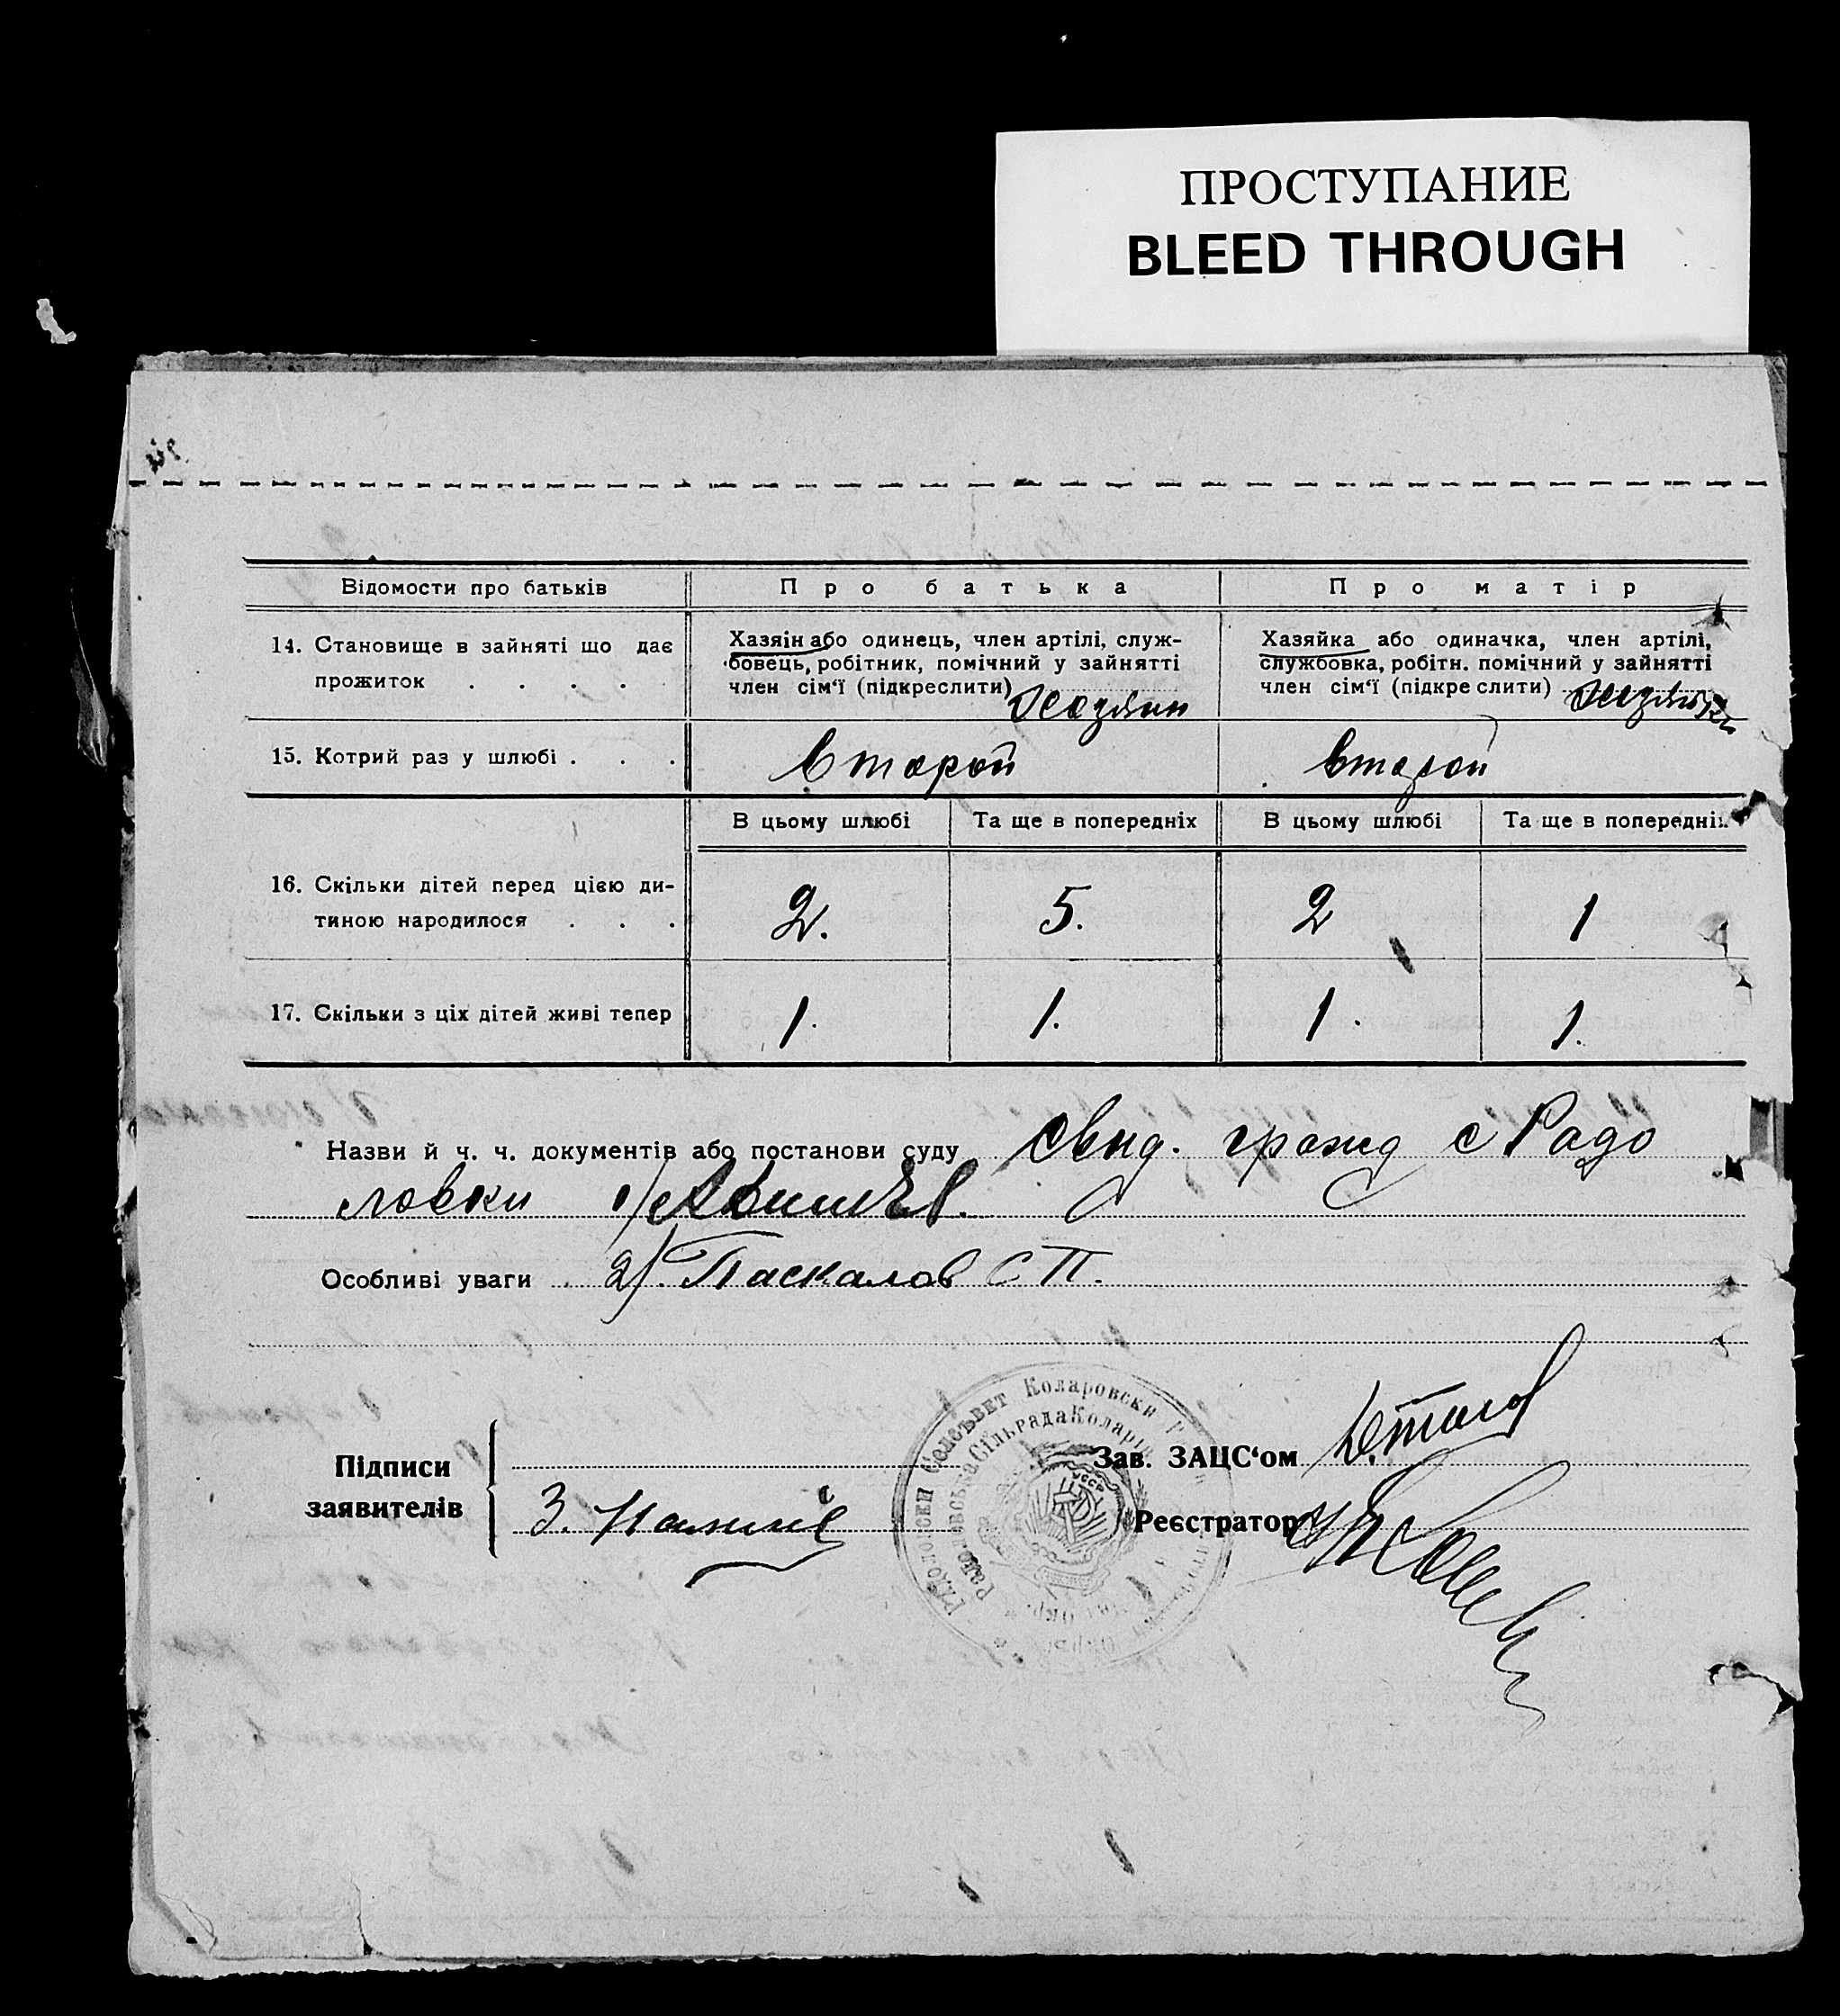 ПРОСТУПАНИЕ
BLEED THROUGH
Відомости про батьків
Про батька
Про матір
14. Становище в зайняті що дає
прожиток . . . .
Хазяїн або одинець, член артілі, служ-
бовець, робітник, помічний у зайнятті
член сім‘ї (підкреслити)
Хозяин
Хазяйка або одиначка, член артілі,
службовка, робітн. помічний у зайнятті
член сім‘ї (підкреслити)
15. Котрий раз у шлюбі . . .
второй
второй
В цьому шлюбі
Та ще в попередніх
В цьому шлюбі
Та ще в попередніх
16. Скільки дітей перед цією ди-
тиною народилося . . .
2.
5.
2
1
17. Скільки з ціх дітей живі тепер
1.
1.
1.
1.
Назви й ч. ч. документів або постанови суду свид. гражд с Радо
ловки 1/
Особливі уваги 2/. Паскалов С П.
Підписи
заявителів
З.
Зав. ЗАЦС‘ом
Реєстратор
Селсъвет Коларовски
Сільрада
УССР